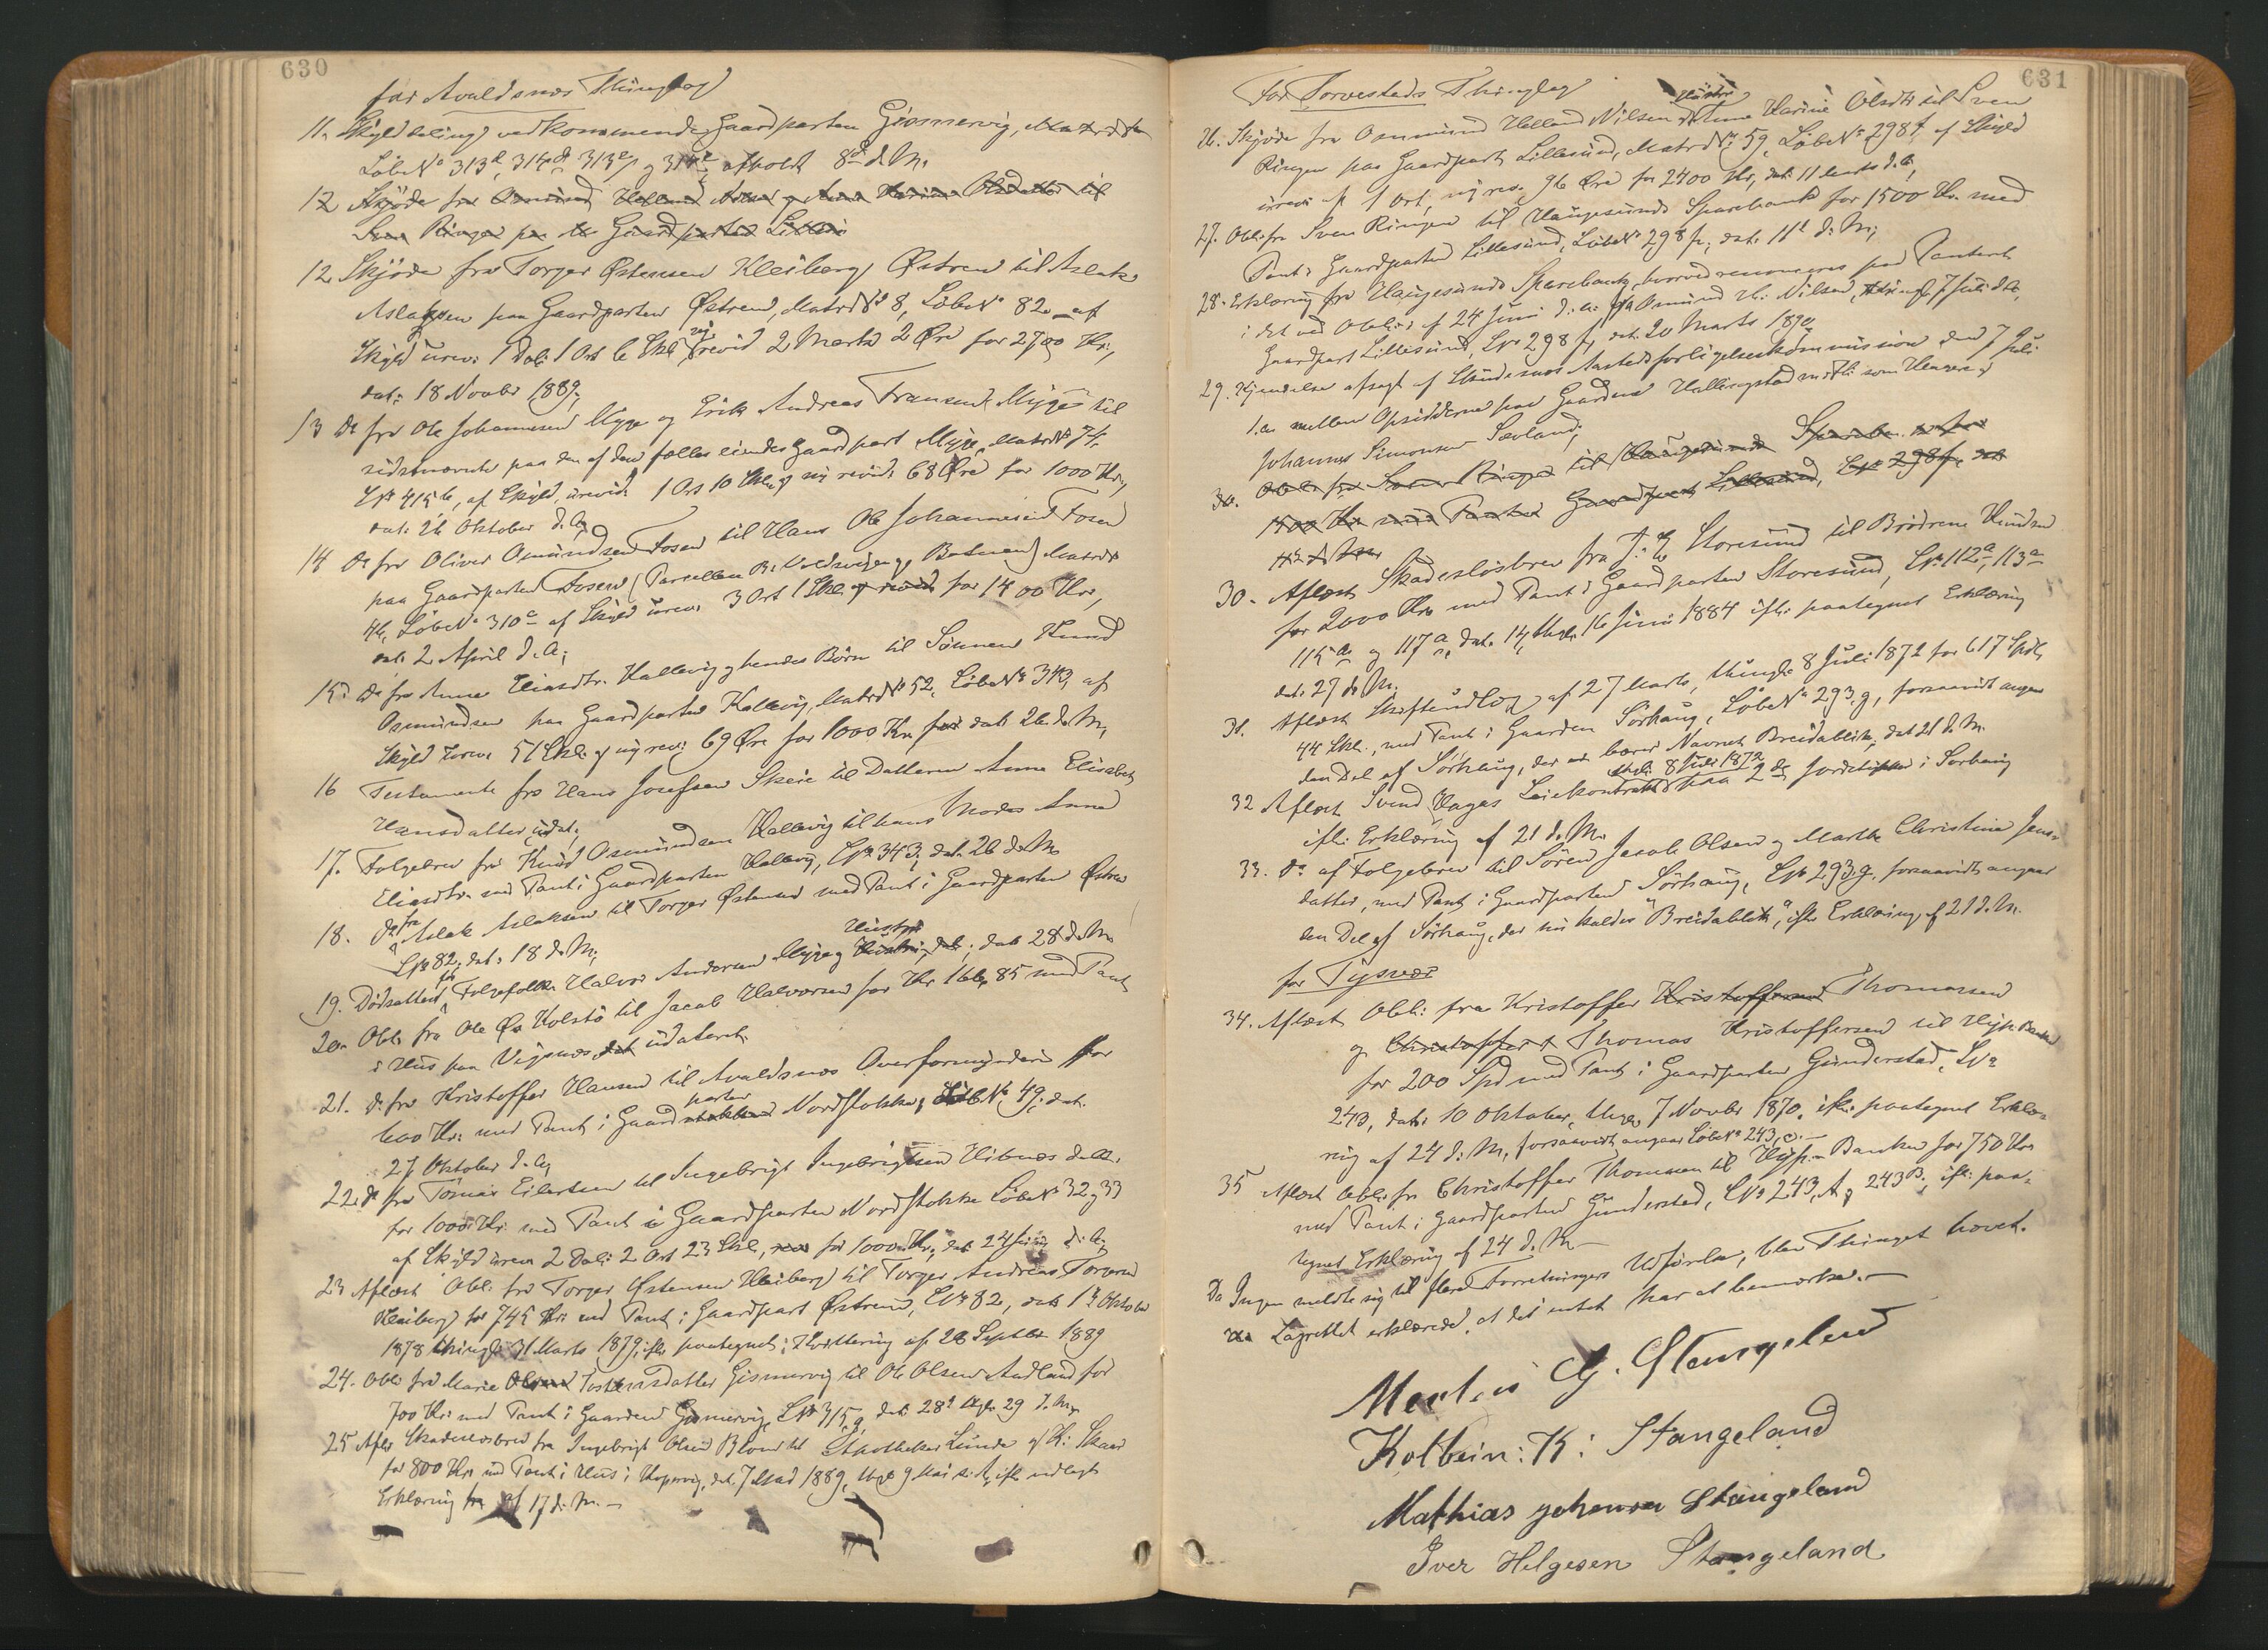 630
for Avaldsnes Thinglag
11. Skylddeling vedkommende Gaardparten Gismervig, Matr No
Löbe No 313d, 314d 313e, og 314e afholdt 8de d. M.
12 Skjöde fra Osmund Helland Nilsen og Anna Karine Olsdatter til
Sven Ringen paa Gaardparten
12. Skjöde fra Torger Østensen Kleiberg Østrem til Aslak
Aslaksen paa Gaardparten Østrem, Matr No 8, Löbe No 82 af
Skyld urev: 1 Dal: 1 Ort 6 Skl ny revid 2 Mark 2 Øre for 2700 Kr.,
dat: 18 Novbr 1889,
13 Do fra Ole Johannesen Myge og Erik Andreas Fransen Myge til
sidstnævnte paa den af dem fælles eiende Gaardpart Myge, Matr No 74,
LNo 415b, af Skyld urevid: 1 Ort 10 Skl og ny revid: 68 Øre for 1000 Kr,
dat: 26 Oktober d. A,
14 Do fra Oliver Osmundsen Fosen til Hans Ole Johannesen Fosen
paa Gaardparten Fosen (Parcellen og Batmen) Matr No
46, Löbe No 310a af Skyld urev: 3 Ort 1 Skl og revid for 1400 Kr,
dat: 2 April d. A;
15. Do fra Anne Eliasdtr. Kallevig og hendes Börn til Sönnen Knud
Osmundsen paa Gaardparten Kallevig, Matr No 52, Löbe No 343, af
Skyld urev: 51 Skl. og ny rev: 69 Øre for 1000 Kr. dat: 26 d. M,
16 Testamente fra Hans Josefsen Skeie til Datteren Anna Elisabet
Hansdatter, udat;
17. Folgebrev fra Knud Osmundsen Kallevig til hans Moder Anna
Eliasdtr. med Pant i Gaardparten Kallevig, LNo 343, dat. 26 d. M.
18. Do fra Aslak Aslaksen til Torger Østensen med Pant i Gaardparten Østrem
LNo 82, dat: 18 d. M;
19. Dödsattest for Folgefolk Halvor Andersen Myge og Hustru; dat 28 d. M.
20. Obl. fra Ole Øs Kolstö til Jacob Halvorsen for Kr 166,85 med Pant
i Hus paa Vigsnes udateret
21. Do fra Kristoffer Hansen til Avaldsnes Overformynderi for
600 Kr. med Pant i Gaardparten Nordstokke, Löbe No 49, dat.
27 Oktober d. A,
22. do fra Tömas Eilertsen til Ingebrigt Ingebrigtsen Hibnes
for 1000 Kr. med Pant i Gaardparten Nordstokke Löbe No 32 og 33
af Skyld urev 2 Dal: 2 Ort 23 Skl, for 1000 Kr, dat. 24 Juni d. A,
23 Aflæst Obl. fra Torger Østensen Kleiberg til Torger Andreas Torgersen
Kleiberg for 745 Kr. med Pant i Gaardpart Østrem, LNo 82, dat: 1 Oktober
1878 thingl 31 Marts 1879, ifl. paategnet Kvittering af 28 Septbr 1889
24. Obl. fra Marie Torstensdatter Gismervig til Ole Olsen Audland for
700 Kr. med Pant i Gaarden Gismervig, LNo 315g dat: 28de thgl. 29 d. M,
25 Afl. Skadeslösbrev fra Ingebrigt Olsen Blom til Apotheker Lunde og H: Skaar
for 800 Kr. med Pant i Hus i Kopervig, dat. 7 Mai 1889, thgl. 9 Mai s. A, ifl. vedlagt
Erklæring af 17 d. M. —
631
For Torvesteds Thinglag
26. Skjöde fra Osmund Helland Nilsen og Hustru Anna Karine Olsdtr til Sven
Ringen paa Gaardparten Lillesund, Matr No 59, Löbe No 298f, af Skyld
urev: 1 Ort, ny rev: 96 Øre for 2400 Kr, dat: 11 Marts d. A,
27. Obl. fra Sven Ringen til Haugesunds Sparebank for 1500 Kr. med
Pant i Gaardparten Lillesund, Löbe No 298f, dat. 11te d. M;
28. Erklæring fra Haugesunds Sparebank, hvorved renonceres paa Panteret
i det ved Obl. af 24 Juni d. A. fra Osmund H. Nilsen, thingl. 7 Juli d. A,
Gaardpart Lillesund, LNo 298f, dat. 20 Marts 1890,
29. Kjendelse afsagt af Skudesnes Aastedsforligelseskommission den 7 Juli
f. a. mellem Opsidderne paa Gaarden Hallingstad som Klagere og
Johannes Simonsen Sævland;
30. Obl. fra Sven Ringen til Haugesunds Spareb.
1500 Kr. med Pant i Gaardpart Lillesund, LNo 298f, dat
11te d. M.
30. Aflæst Skadeslösbrev fra J. E Storesund til Brödrene Knudsen
for 2000 Kr. med Pant i Gaardparten Storesund, LNo 112a, 113a
115a og 117a, dat. 14, thgl. 16 Juni 1884 ifl. paategnet Erklæring
dat: 27 d. M.
31. Aflæst Skifteudlæg af 27 Marts, thingl. 8 Juli 1872 for 617 Spd
44 Skl., med Pant i Gaarden Sörhaug, Löbe No 293,g, forsaavidt angaar
den Del af Sörhaug, der nu bærer Navnet Breidablik; dat 21 d. M.
32 Aflæst Svend Hages Leiekontrakt thgl. 8 Juli 1872 paa 2de Jordstykker i Sörhaug
ifl. Erklæring af 21 d. M.
33. Do af Folgebrev til Sören Jacob Olsen og Marthe Christine Jens-
datter, med Pant i Gaardparten Sörhaug, LNo 293,g. forsaavidt angaar
den Del af Sörhaug, der nu kaldes "Breidablik", ifl. Erklæring af 21 d. M.
for Tysvær
34. Aflæst Obl: fra Kristoffer Kristoffersen Thomassen
og Christoffer Thomas Kristoffersen til Hyp. Banken
for 200 Spd med Pant i Gaardparten Gunderstad, LNo
243, dat: 10 Oktober, thgl. 7 Novbr 1870, ifl. paategnet Erklæ-
ring af 24 d. M, forsaavidt angaar Löbe No 243,c. —
35 Aflæst Obl. fra Christoffer Thomassen til Hyp. Banken for 750 Kr.
med Pant i Gaardparten Gunderstad, LNo 243,A og 243B, ifl. paa-
tegnet Erklæring af 24 d. M —
Da Ingen meldte sig til flere Forretningers Udförelse, blev Thinget hævet.
Lagrettet erklærede, at det intet har at bemærke. —
G. Stangeland
Kolbein: K: Stangeland
Mathias Johnsen Stangeland
Iver Helgesen Stangeland